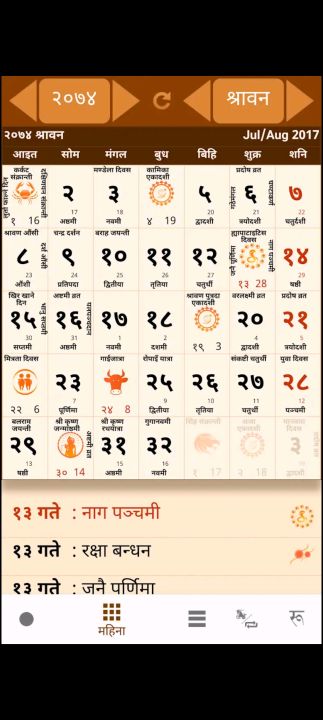 २०७४
श्रावन
२०७४ श्रावन Jul/Aug 2017
आइत सोम मंगल बुध बिहि शुक्र शनि
कर्कट संक्रान्ती मण्डेला दिवस कामिका एकादशी प्रदोष व्रत
२ ३ ५ ६ ७
१ 16 17 18 ४ 19 20 21 22
अष्टमी नवमी द्वादशी त्रयोदशी चतुर्दशी
श्रावण औंसी चन्द्र दर्शन बराह जयन्ती ह्यापाटाइटिस दिवस
८ ९ १० ११ १२ १४
23 24 25 26 27 १३ 28 29
औंशी प्रतिपदा द्वितीया तृतिया चतुर्थी षष्ठी
खिर खाने दिन अष्टमी व्रत श्रावण पुत्रदा एकादशी वरलक्ष्मी व्रत प्रदोष व्रत
१५ १६ १७ १८ २० २१
30 31 1 2 १९ 3 4 5
सप्तमी अष्टमी नवमी दशमी द्वादशी त्रयोदशी
मित्रता दिवस गाईजात्रा रोपाइँ यात्रा संकष्टी चतुर्थी युवा दिवस
२३ २५ २६ २७ २८
२२ 6 7 २४ 8 9 10 11 12
पूर्णिमा द्वितीया तृतिया चतुर्थी पञ्चमी
बलराम जयन्ती श्री कृष्ण जन्माष्टमी श्री कृष्ण रथयात्रा गुगानवमी सिंह संक्रान्ती
२९ ३१ ३२ ३
13 ३० 14 15 16 १ 17 २ 18 19
षष्ठी अष्टमी नवमी द्वादशी
१३ गते : नाग पञ्चमी
१३ गते : रक्षा बन्धन
१३ गते : जनै पूर्णिमा
महिना